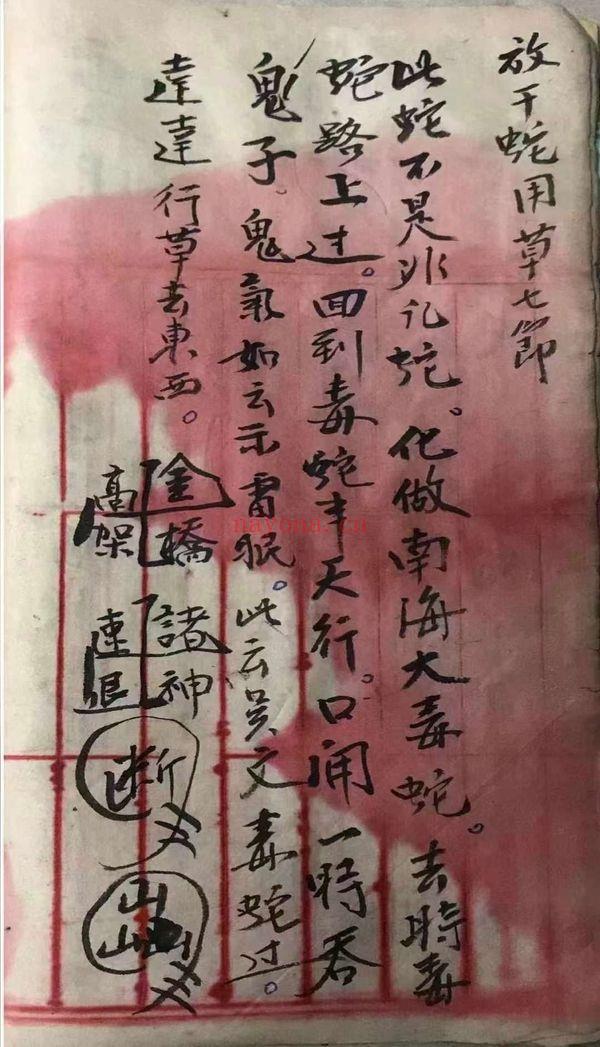 放干蛇用草七節
此蛇不是非凡蛇。化做南海大毒蛇。去時毒
蛇路上过。回到毒蛇半天行。口闹一時吞
鬼子。鬼氣如云示雷眠。此云吴文毒蛇过。
達達行草去東西。
金橋 諸神
高架 速退
断
山山山
nayona.cn